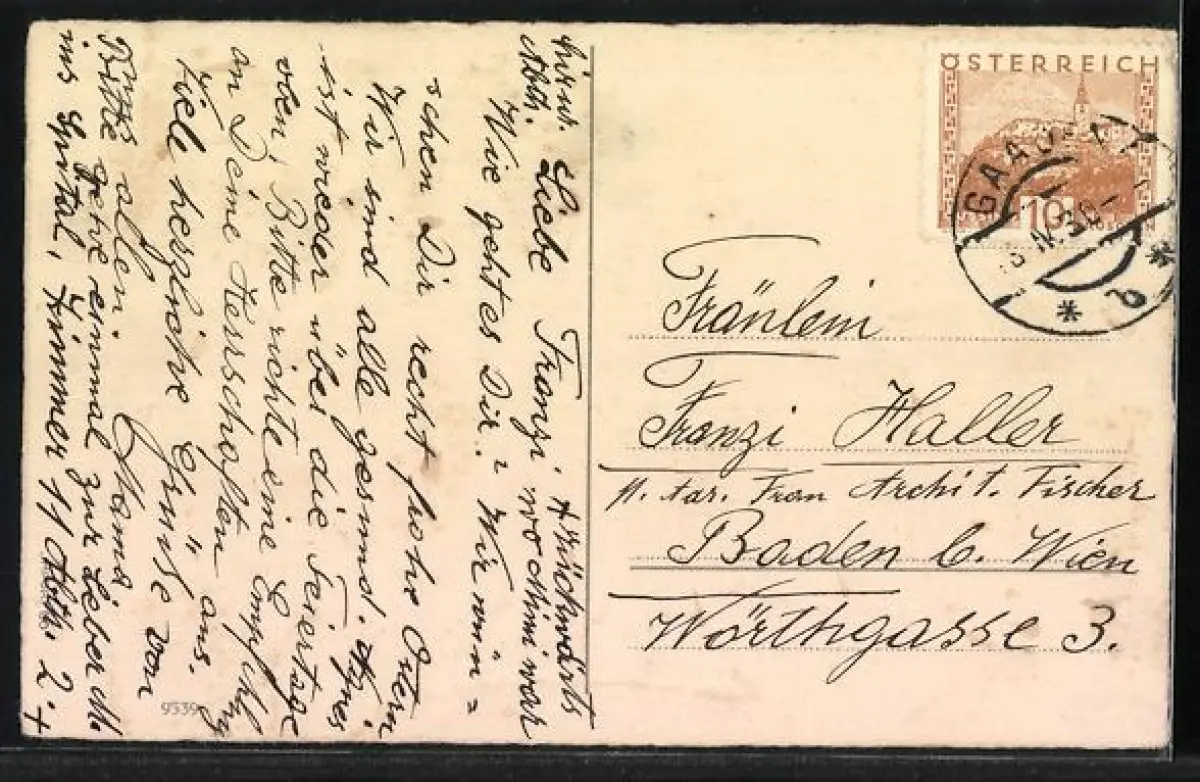 Liebe Franzi
Wie geht es Dir? Wir wün=
schen Dir recht frohe Ostern
Wir sind alle gesund. Agnes
ist wieder über die Feiertage
oben, Bitte richte eine Empfehlung
an Deine Herrschaften aus.
Viele herzliche Grüße von
uns allen Mama
Bitte gehe einmal zur Lieben M.
ins Spital, Zimmer 11 Abth. 2+
9539
ÖSTERREICH
10
GROSCHEN
GAADEN
Fräulein
Franzi Haller
Frau Archit. Fischer
Baden b. Wien
Wörthgasse 3.